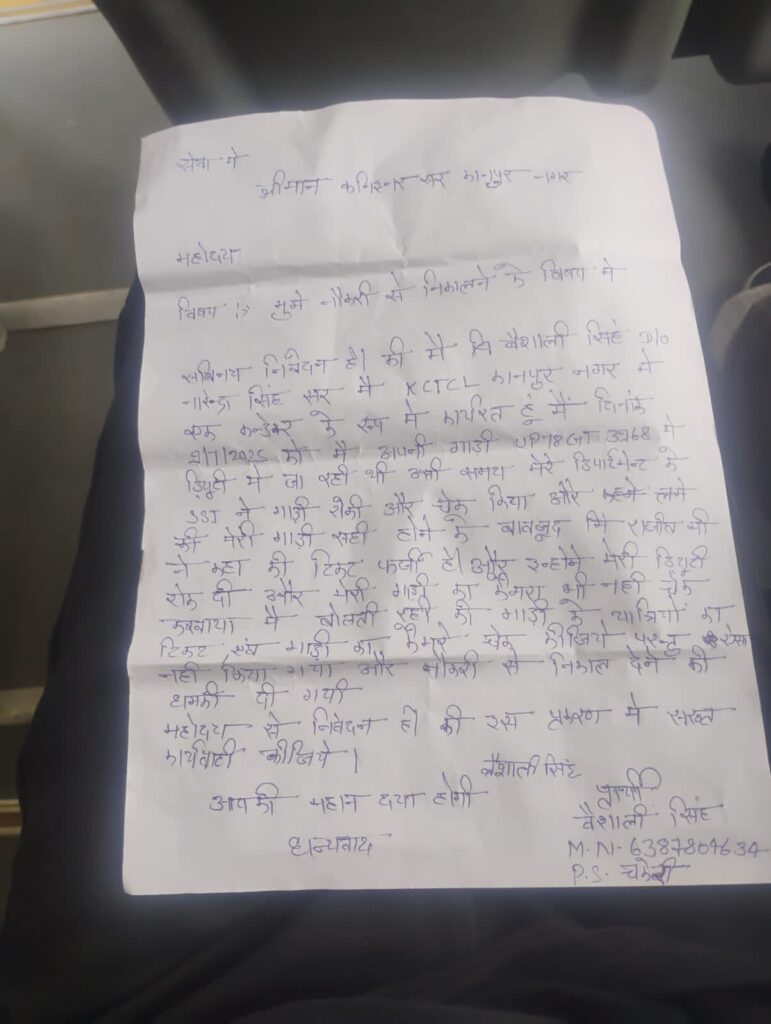 सेवा मे
श्रीमान कमिश्नर सर कानपुर नगर
महोदय
विषय :- मुझे नौकरी से निकालने के विषय मे
सविनय निवेदन है। की मै वैशाली सिंह D/O
नारेन्द्र सिंह सर मै KCTCL कानपुर नगर मे
एक कन्डेक्टर के रूप मे कार्यरत हूं मैं दिनांक
9/7/2025 को मै अपनी गाड़ी UP78GT 3968 मे
ड्यूटी मे जा रही थी उसी समय मेरे डिपार्टमेन्ट के
SSI ने गाड़ी रोकी और चेक किया और कहने लगे
की मेरी गाड़ी सही होने के बावजूद भि राजीव जी
ने कहा की टिकट फर्जी है। और उन्होने मेरी ड्यूटी
रोक दी और मेरी गाड़ी का कैमरा भी नही चेक
करवाया मै बोलती रही की गाड़ी के यात्रियों का
टिकट एवं गाड़ी का कैमरे चेक कीजिये परन्तु ऐसा
नही किया गया और नौकरी से निकाल देने की
धमकी दी गयी
महोदय से निवेदन है। की इस प्रकरण मे सख्त
कार्यवाही कीजिये।
वैशाली सिंह
आपकी महान दया होगी
प्रार्थी
वैशाली सिंह
धन्यवाद
M.N- 6387804634
P.S. चकेरी